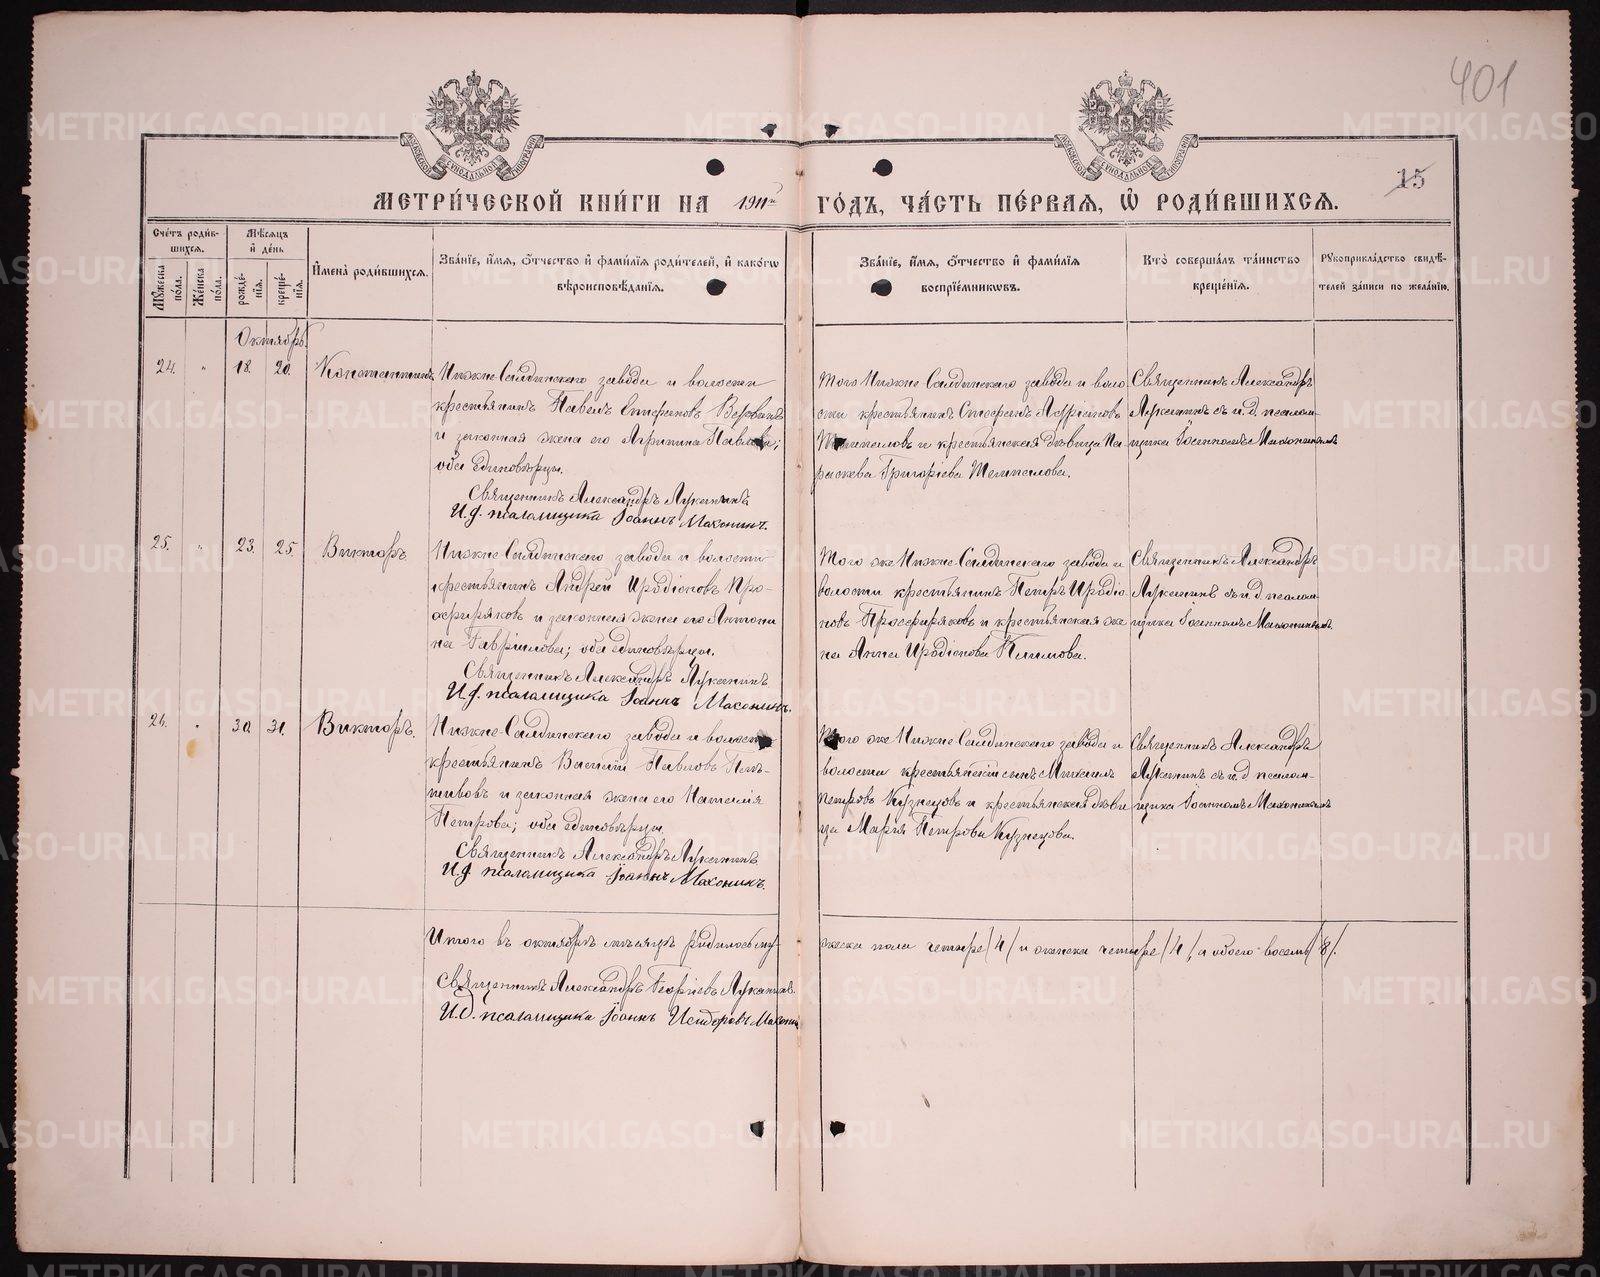 401
15
МЕТРИ́ЧЕСКОЙ КНИ́ГИ НА 1911й ГО́ДЪ, ЧА́СТЬ ПЕ́РВАЯ, Ѿ РОДИ́ВШИХСЯ.
Сче́тъ роди́в-
шихся.
Мѣ́сяцъ
и҆ де́нь
Мꙋ́жеска по́ла.
Же́нска по́ла.
рожде́-
нїя.
креще́-
нїя.
И҆мена̀ роди́вшихся.
Зва́нїе, и҆́мя, ѻ҆́тчество и҆ фами́лїя роди́телей, и҆ како́гѡ
вѣроисповѣ́данїя.
Зва́нїе, и҆́мя, ѻ҆́тчество и҆ фами́лїя
воспрїе́мникѡвъ.
Кто̀ соверша́лъ та́инство
креще́нїя.
Рꙋкоприкла́дство свидѣ́-
телей за́писи по жела́нїю.
Октябрь.
24. " 18. 20. Константинъ
Нижне-Салдинскаго завода и волости
крестьянинъ Павелъ Стефановъ
и законная жена его Агрипина Павлова;
оба единовѣрцы.
Священникъ Александръ Луканинъ
И.д. псаломщика Іоаннъ Махонинъ.
Того Нижне Салдинскаго завода и воло
сти крестьянинъ Стефанъ
и крестьянская дѣвица Па
раскева Григоріева
Священникъ Александръ
Луканинъ съ и.д. псалом-
щика Іоанномъ Махонинымъ
25. " 23. 25. Викторъ
Нижне-Салдинскаго завода и волости
крестьянинъ Андрей Иродіоновъ Про-
сфиряковъ и законная жена его Антони
на Гавріилова; оба единовѣрцы.
Священникъ Александръ Луканинъ
И.д. псаломщика Іоаннъ Махонинъ.
Того же Нижне Салдинскаго завода и
волости крестьянинъ Петръ Иродіо
новъ Просфиряковъ и крестьянская же
на Анна Иродіонова Климова.
Священникъ Александръ
Луканинъ съ и.д. псалом-
щика Іоанномъ Махонинымъ.
26. " 30. 31. Викторъ.
Нижне-Салдинскаго завода и волости
крестьянинъ Василій Павловъ
и законная жена его Наталія
Петрова; оба единовѣрцы.
Священникъ Александръ Луканинъ
И.д. псаломщика Іоаннъ Махонинъ.
Того же Нижне Салдинскаго завода и
волости крестьянскій сынъ Михаилъ
Петровъ Кузнецовъ и крестьянская дѣви
ца Марія Петрова Кузнецова.
Священникъ Александръ
Луканинъ съ и.д. псалом-
щика Іоанномъ Махонинымъ
Итого въ октябрѣ мѣсяцѣ родилось му-
жеска пола четыре /4/ и женска четыре /4/, а обоего восемь /8/.
Священникъ Александръ Георгіевъ Луканинъ.
И.д. псаломщика Іоаннъ Исидоровъ Махонин
METRIKI.GASO-URAL.RU